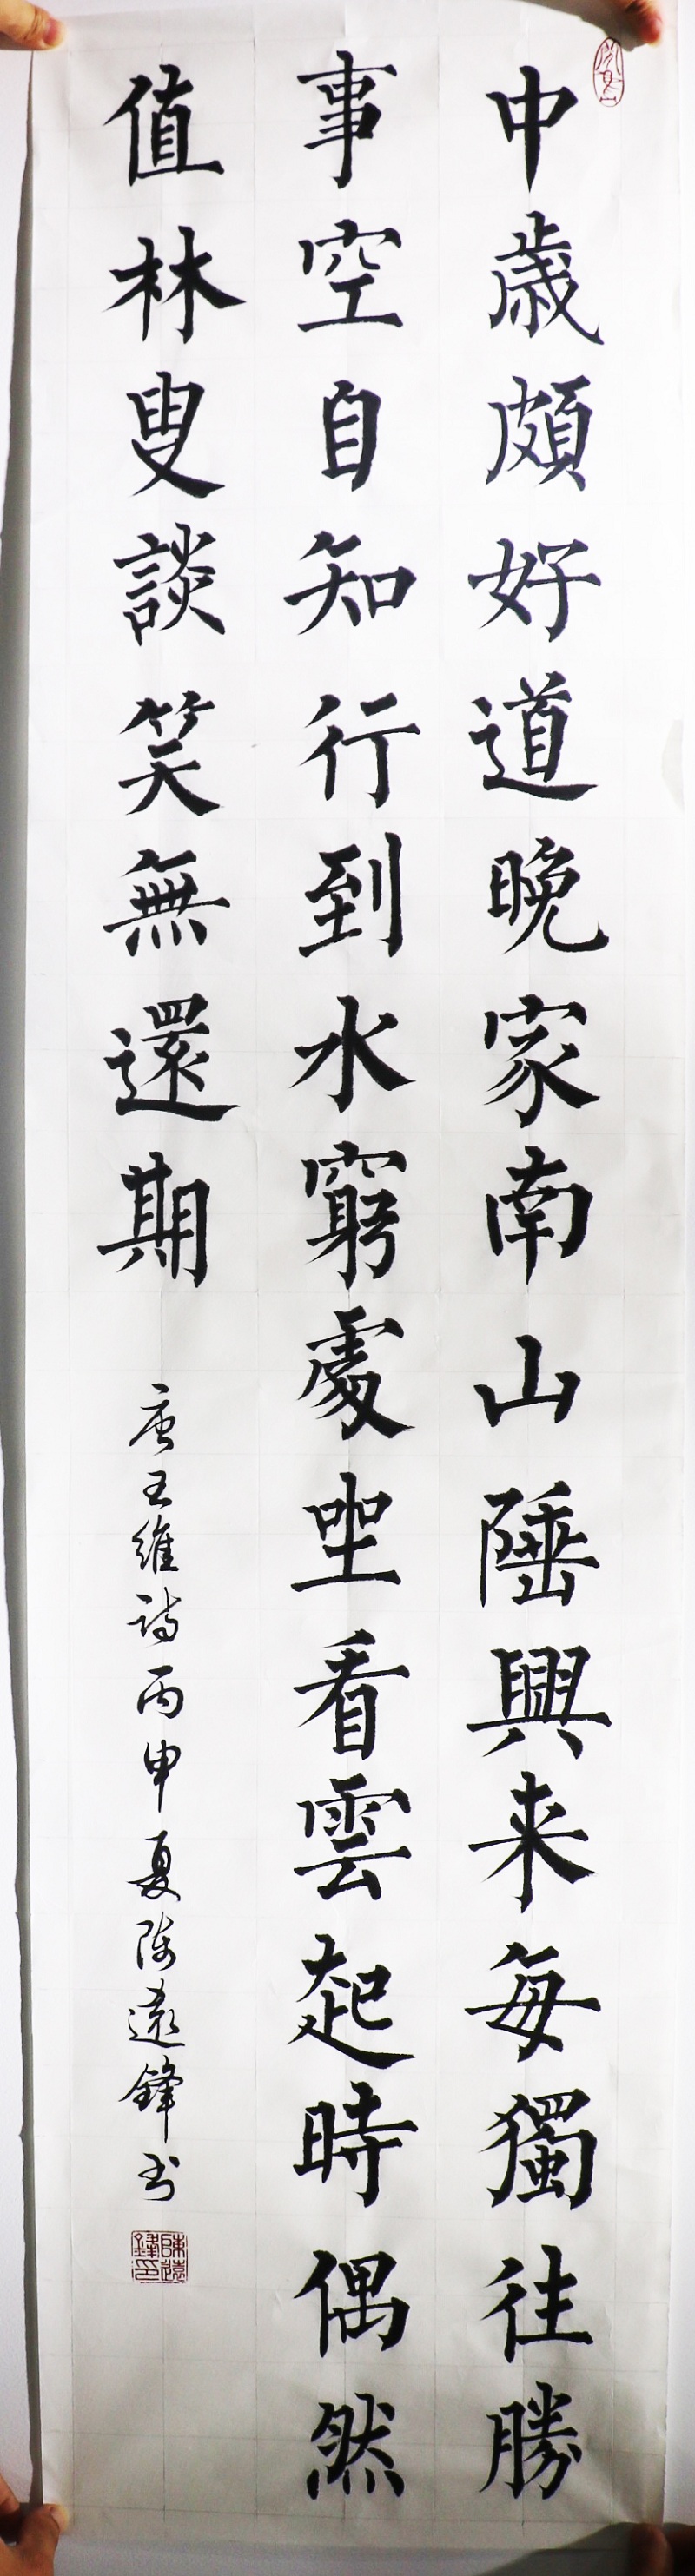 中歳頗好道晚家南山陲興来每獨往勝
事空自知行到水窮處坐看雲起時偶然
值林叟談笑無還期
唐王維詩丙申夏陳遠鋒书
陳遠鋒印